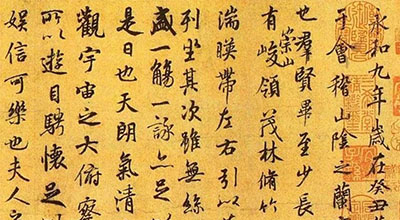 永和九年歲在癸丑
于會稽山陰之蘭
也羣賢畢至少長
有崇山峻領茂林脩竹
湍暎帶左右引以
列坐其次雖無絲
盛一觴一詠亦足
是日也天朗氣清
觀宇宙之大俯察
所以遊目騁懷足
娛信可樂也夫人之